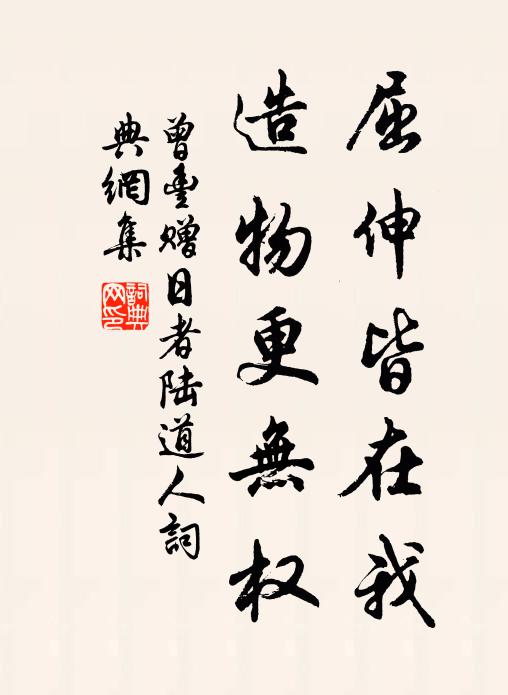 屈伸皆在我
造物更無权
曾豊赠日者陆道人詞
典網集
詞典网印